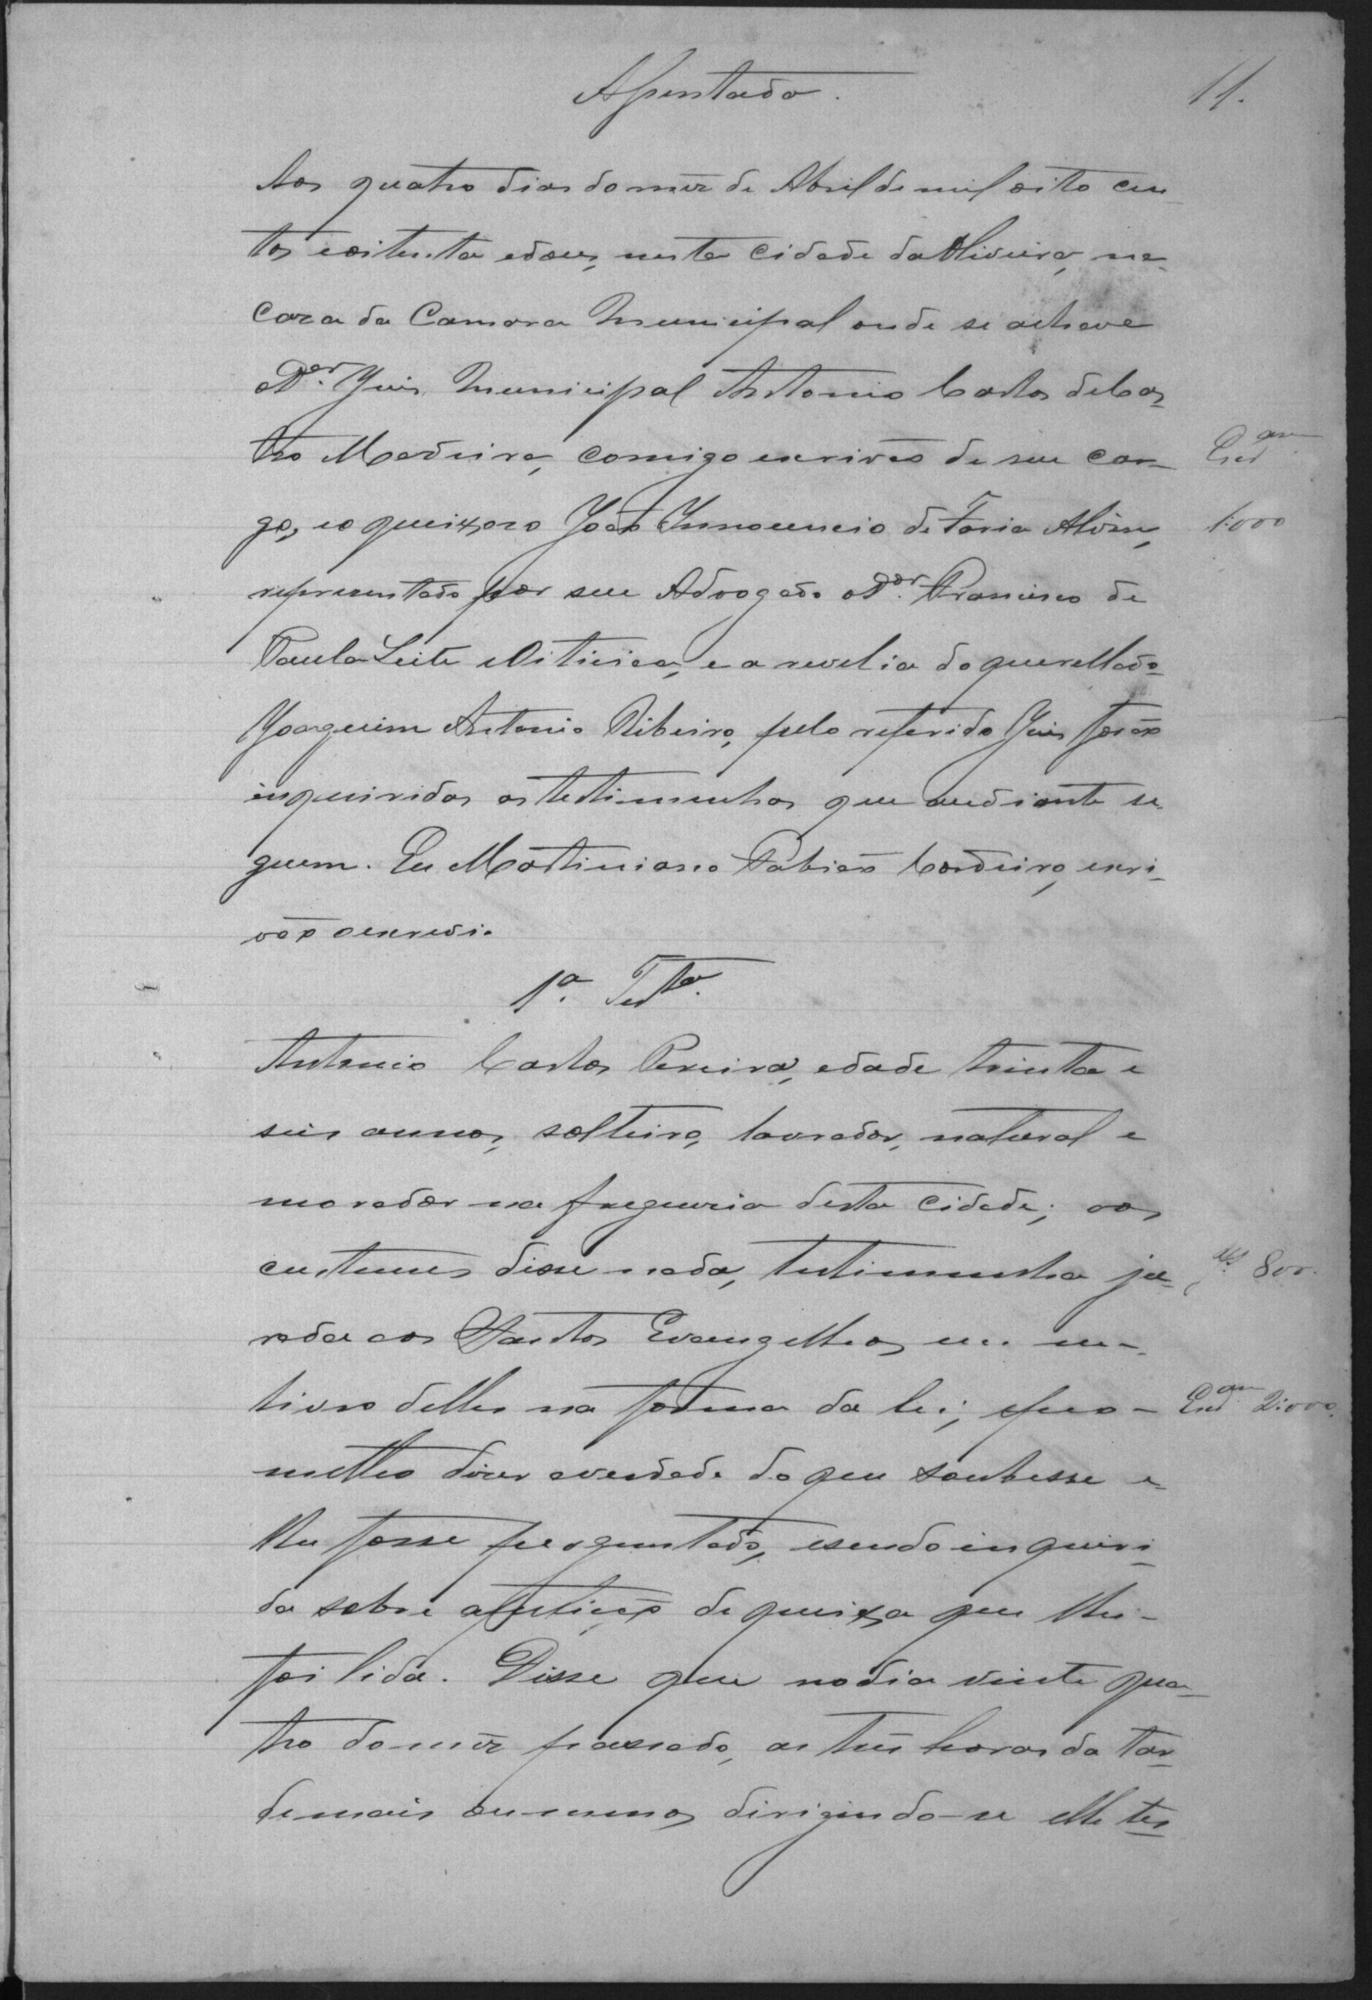 Assentado.
11.
Aos quatro dias do mez de Abril de mil oito cen
tos e oitenta e dous, nesta Cidade da Oliveira, na
Caza da Camara Municipal onde se achava
o D.or Juis Municipal Antonio Carlos de Cas
tro Madeira, comigo escrivão de seu car
go, e o queixoso João Innocencio de Faria Alvim,
representado por seu Advogado o D.or Francisco de
Paula Leite e Oiticica, e a revelia do querellado
Joaquim Antonio Ribeiro, pelo referido Juis forão
inquiridas as testimunhas que a o diante se
guem. Eu Martiniano Fabião Cordeiro, escri
vão o escrevi.
1.a Test.a
Antonio Carlos Pereira, edade trinta e
seis annos, solteiro, lavrador, natural e
morador na freguesia desta Cidade; aos
custumes disse nada, testimunha ju
rada aos Santos Evangelhos em um
livro delles na forma da lei; e pro-
metteo diser a verdade do que soubesse e
lhe fosse perguntado, e sendo inqueri
da sobre a petição de queixa que lhe
foi lida. Disse que no dia vinte qua
tro do mez passado, as tres horas da tar
de mais ou menos, dirigindo-se elle tes
1:000
800.
2:000.